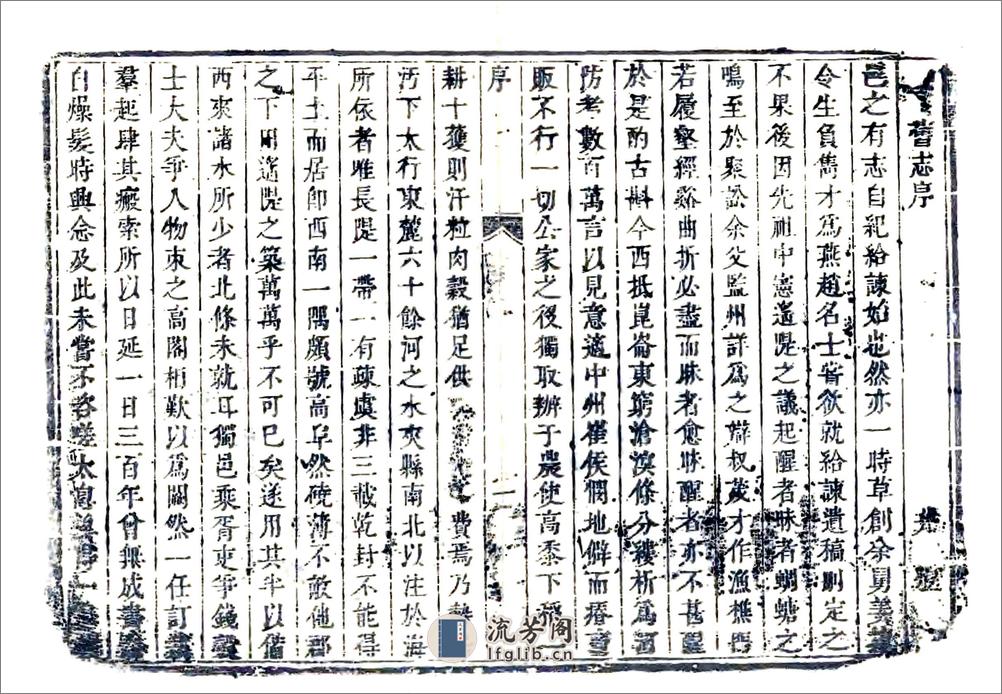 舊志序
邑之有志自紀給諫始也然亦一時草創余舅義
令生負雋才爲燕趙名士嘗欲就給諫遺稿刪定之
不果後因先祖中憲遥隄之議起醒者昧者蜩螗之
鳴至於聚訟余父監州詳爲之辯叔茂才作漁樵問
若履壑經谿曲折必盡而昧者愈昧醒者亦不甚醒
於是酌古斟今西抵崑崙東窮滄溟條分縷析爲河
防考數百萬言以見意適中州崔侯憫地僻而瘠
販不行一切公家之役獨取辦于農使高黍下
序
耕十獲則汗粒肉穀猶足供 費焉乃
汚下太行東麓六十餘河之水夾縣南北以注於海
所依者惟長隄一帶一有疎虞非三載乾封不能得
平土而居卽西南一隅頗號高阜然磽薄不敵他郡
之下田遥隄之築萬萬乎不可已矣遂用其半以備
西來諸水所少者北條未就耳獨邑乘胥吏爭錢穀
士大夫爭人物束之高閣柄歎以爲闕然一任訂
羣起肆其瘢索所以日延一日三百年曾無成書
自燥髮時興念及此未嘗不咨嗟太息
流芳阁
lfglib.cn